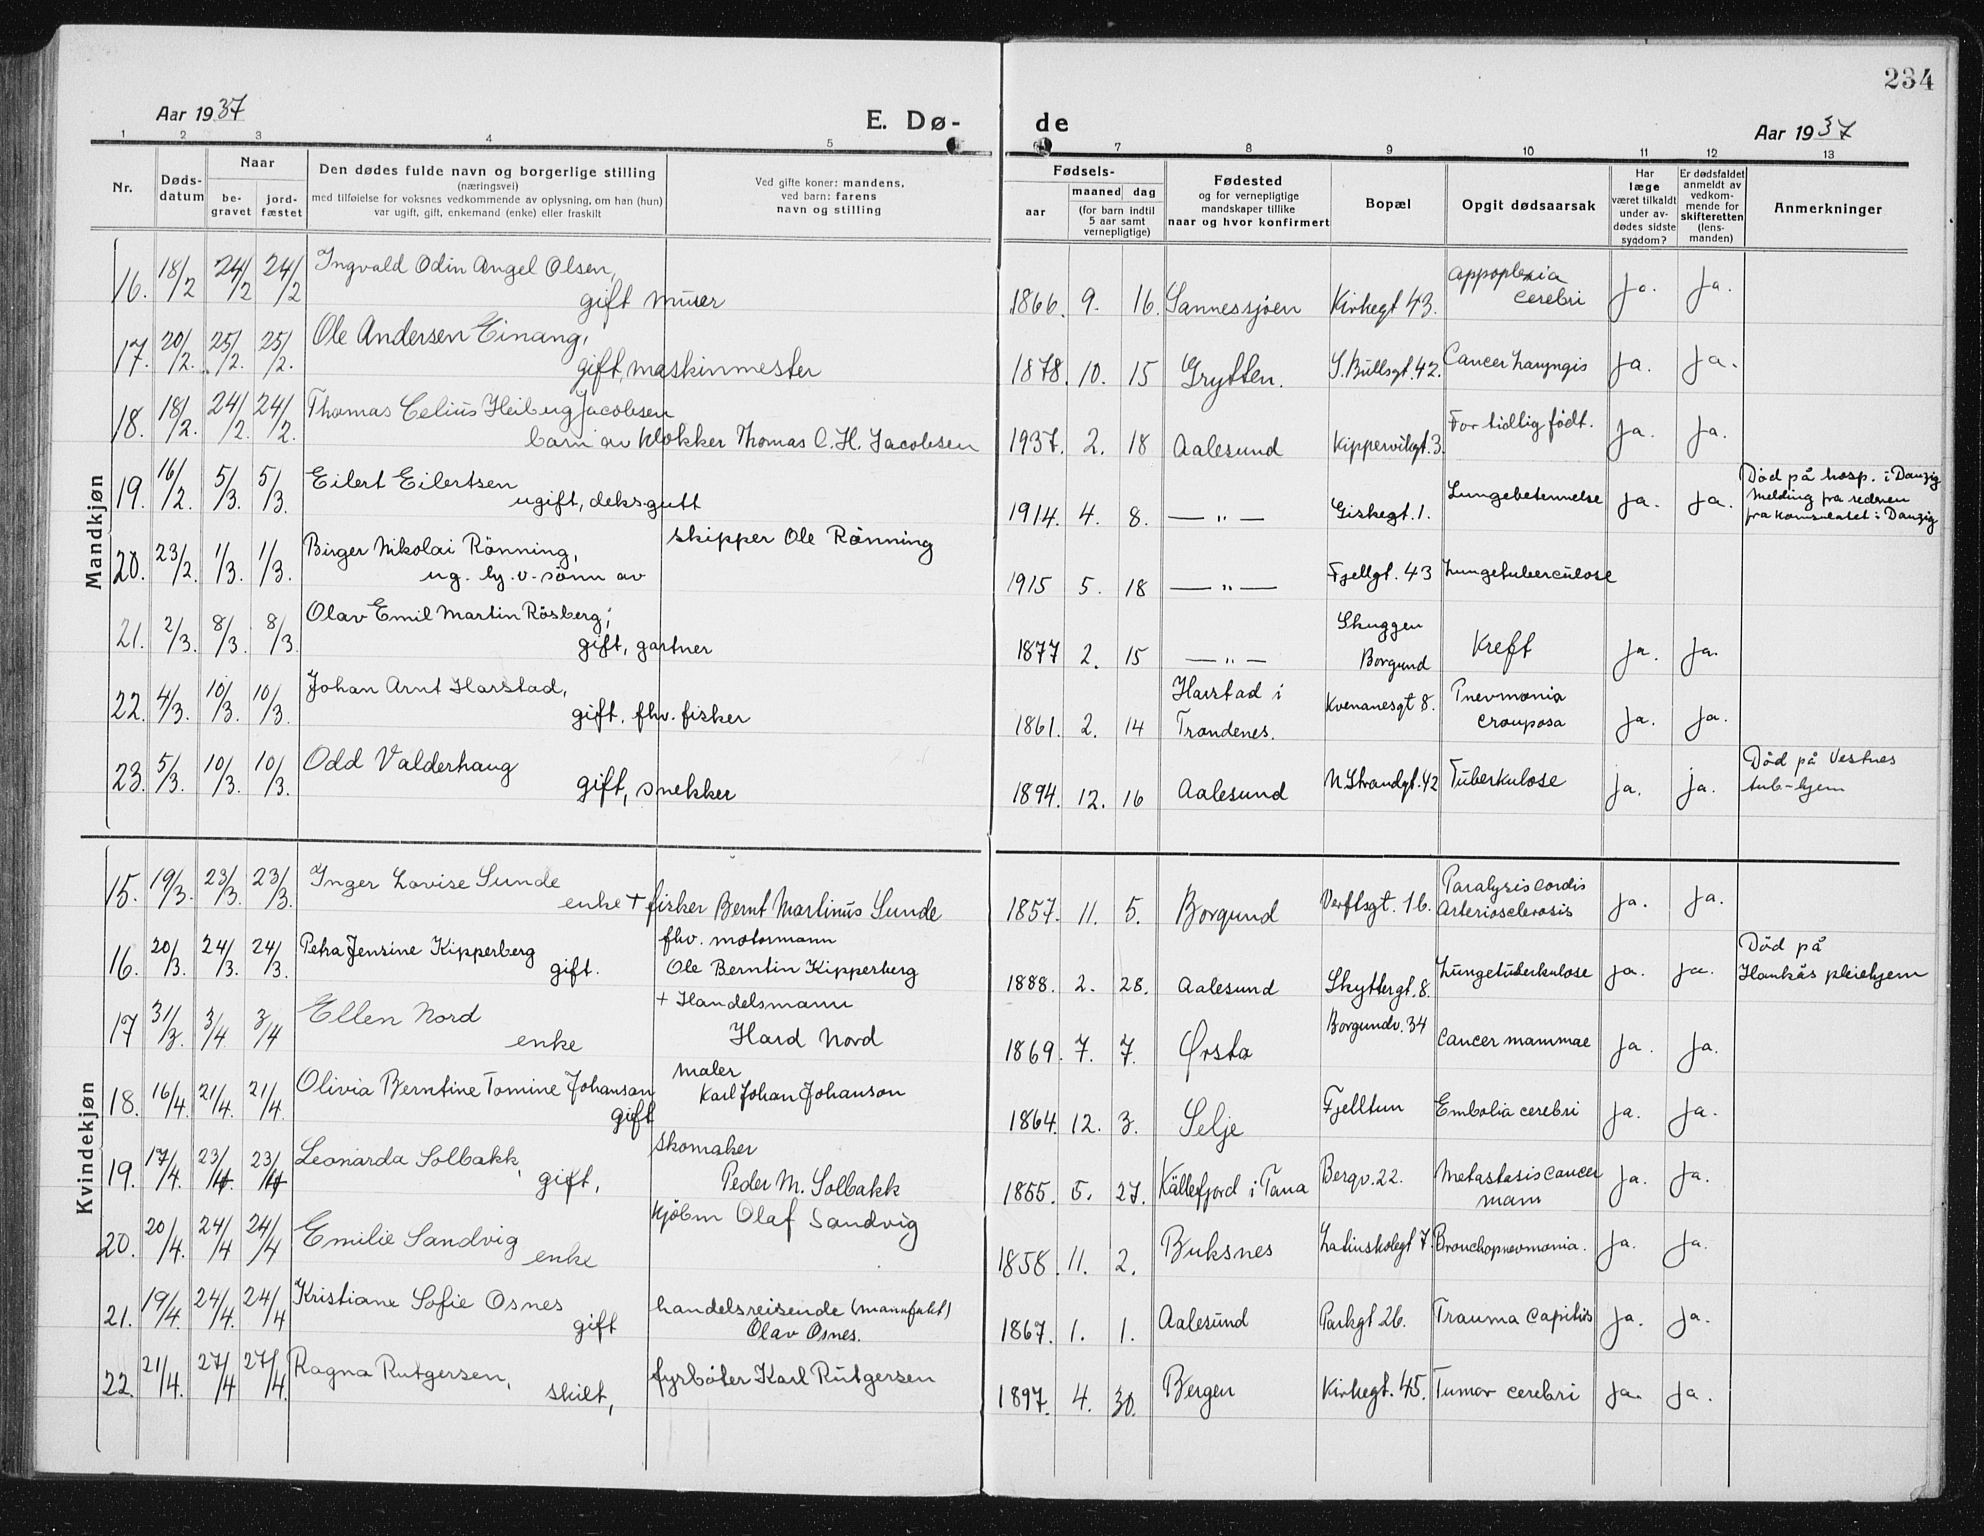 234
Aar 1937
E. Dø-
de
Aar 1937
1 2 3 4 5 7 8 9 10 11 12 13
Nr.
Døds-
datum
Naar
be-
gravet
jord-
fæstet
Den dødes fulde navn og borgerlige stilling
(næringsvei)
med tilføielse for voksnes vedkommende av oplysning, om han (hun)
var ugift, gift, enkemand (enke) eller fraskilt
Ved gifte koner: mandens,
ved barn: farens
navn og stilling
Fødsels-
aar
maaned dag
(for barn indtil
5 aar samt
vernepligtige)
Fødested
og for vernepligtige
mandskaper tillike
naar og hvor konfirmert
Bopæl
Opgit dødsaarsak
Har
læge
været tilkaldt
under av-
dødes sidste
sygdom?
Er dødsfaldet
anmeldt av
vedkom-
mende for
skifteretten
(lens-
manden)
Anmerkninger
Mandkjøn
16. 18/2 24/2 24/2 Ingvald Odin Angel Olsen,
gift murer
1866. 9. 16. Sannessjøen Kirkegt 43. Appoplexia
cerebri ja. ja.
17. 20/2. 25/2. 25/2. Ole Andersen Einang,
gift, maskinmester
1878. 10. 15 Grytten. S. Bullsgt. 42. Cancer Laryngis ja. ja.
18. 18/2. 24/2. 24/2. Thomas Celius Heiberg Jacobsen
barn av klokker Thomas C. H. Jacobsen
1937. 2. 18 Aalesund Kippervikgt. 3. For tidlig født. ja. ja.
19. 16/2. 5/3. 5/3. Eilert Eilertsen
ugift, deksgutt
1914. 4. 8. — „ — Giskegt. 1. Lungebetennelse ja. ja. Död på hosp. i Danzig
Melding fra rederen
fra konsulatet i Danzig
20. 23/2. 1/3. 1/3. Birger Nikolai Rönning,
ug. hj. v. sönn av
skipper Ole Rönning
1915 5. 18 — „ — Fjellgt. 43 Lungetuberculose
21. 2/3. 8/3. 8/3. Olav Emil Martin Rösberg,
gift, gartner
1877 2. 15 — „ — Skuggen
Borgund Kreft ja. ja.
22. 4/3. 10/3. 10/3. Johan Arnt Harstad,
gift, fhv. fisker
1861. 2. 14 Harstad i
Trondenes. Kvenanesgt 8. Pnevmonia
crouposa ja. ja.
23. 5/3. 10/3. 10/3. Odd Valderhaug
gift, snekker
1894. 12. 16 Aalesund N. Strandgt. 42 Tuberkulose ja. ja. Död på Vestnes
tub-hjem
Kvindekjøn
15. 19/3. 23/3. 23/3. Inger Lovise Sunde
enke + fisker Bernt Martinus Sunde
1857. 11. 5. Borgund Verftsgt. 16. Paralysis cordis
Arteriosclerosis ja. ja.
16. 20/3. 24/3. 24/3. Petra Jensine Kipperberg
gift.
fhv. motormann
Ole Berntin Kipperberg
1888. 2. 28. Aalesund Skyttergt. 8. Lungetuberkulose ja. ja. Död på
Haukås pleiehjem
17 31/3. 3/4 3/4 Ellen Nord
enke
+ Handelsmann
Hard Nord
1869. 7. 7. Ørsta Borgundv. 34 Cancer mammae ja. ja.
18. 16/4. 21/4. 21/4. Olivia Berntine Tomine Johanson
gift
maler
Karl Johan Johanson
1864. 12. 3. Selje Fjelltun Embolia cerebri ja. ja.
19. 17/4. 23/4. 23/4 Leonarda Solbakk,
gift,
skomaker
Peder M. Solbakk
1855. 5. 27. Källefjord i Tana Bergv. 22. Metastasis cancer
mam ja. ja.
20. 20/4. 24/4 24/4 Emilie Sandvig
enke
kjöbm Olaf Sandvig
1858. 11. 2. Buksnes Latinskolegt 7. Bronchopnevmonia. ja. ja.
21. 19/4. 24/4. 24/4 Kristiane Sofie Osnes
gift
handelsreisende (manufakt)
Olav Osnes.
1867. 1. 1. Aalesund Parkgt 26. Trauma capitis ja. ja.
22. 21/4. 27/4 27/4. Ragna Rutgersen,
skilt,
fyrböter Karl Rutgersen
1897. 4. 30. Bergen Kirkegt. 45. Tumor cerebri ja. ja.